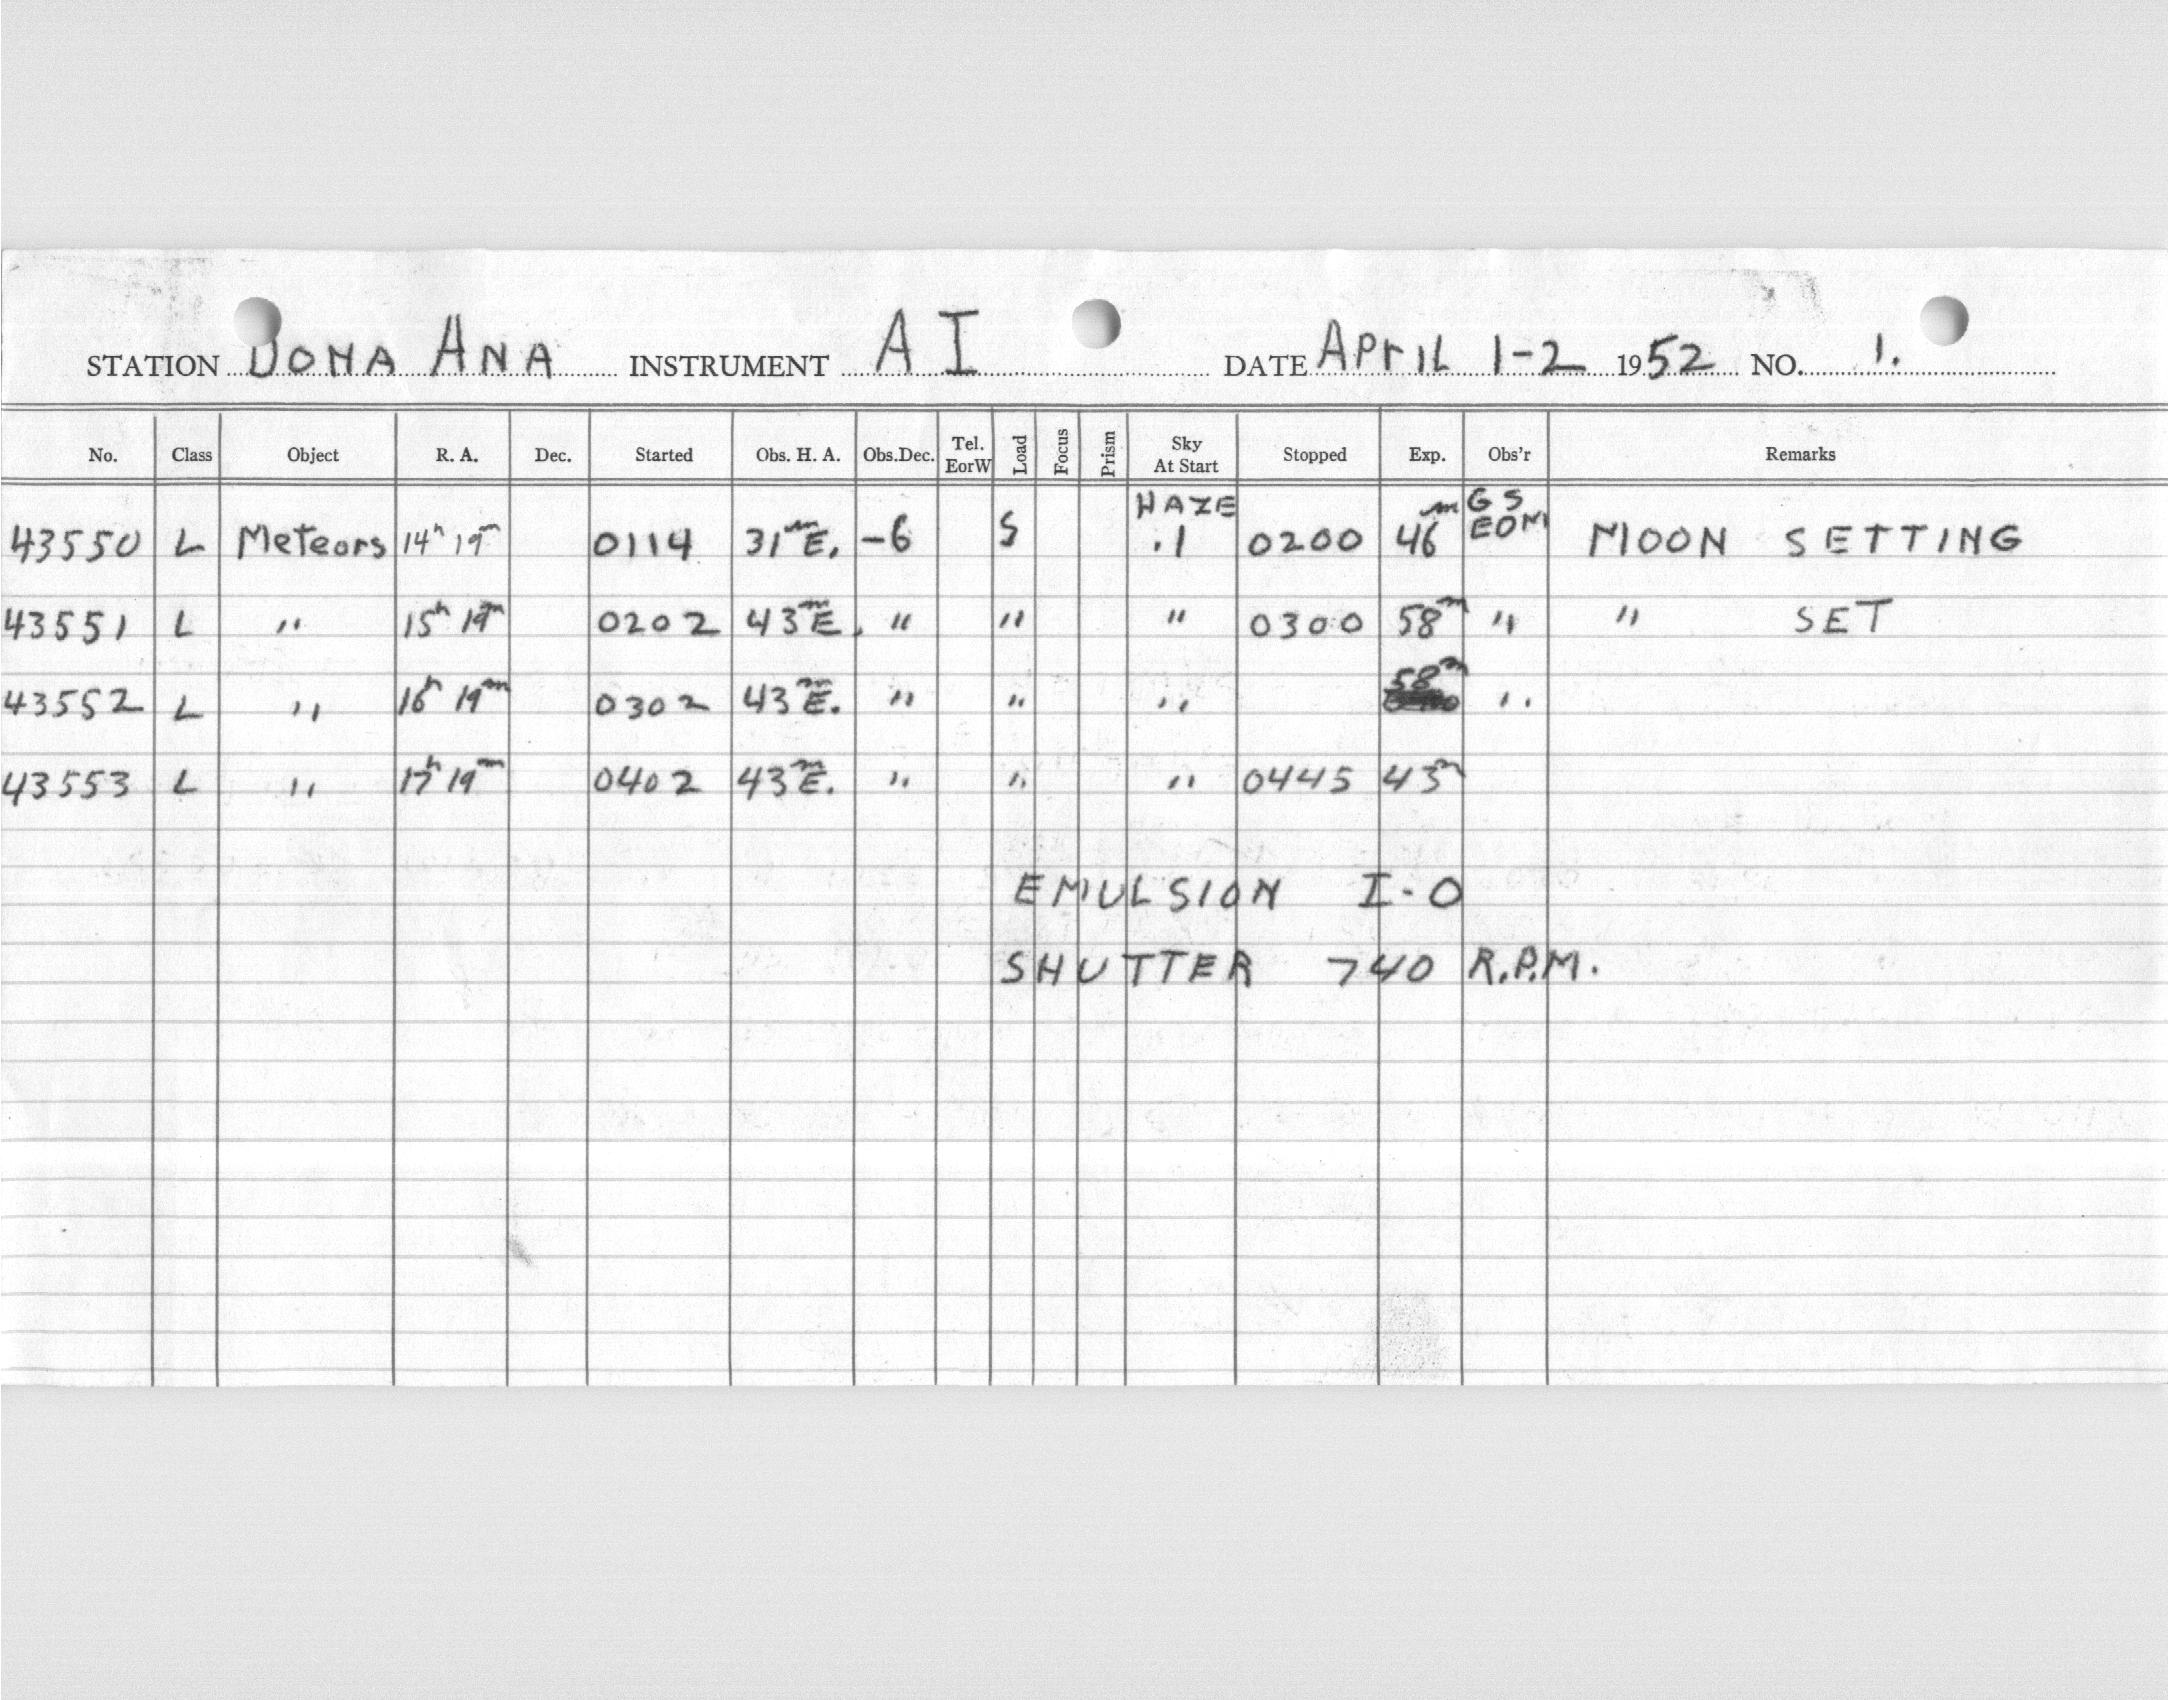 STATION DONA ANA INSTRUMENT AI DATE APRIL 1-2 1952 NO. 1.
No. Class Object R. A. Dec. Started Obs. H. A. Obs.Dec. Tel. EorW Load Focus Prism Sky At Start Stopped Exp. Obs'r Remarks
43550 L Meteors 14h 19m 0114 31m E. -6 S HAZE .1 0200 46m GS EOM MOON SETTING
43551 L " 15h 19m 0202 43m E. " " " 0300 58m " " SET
43552 L " 16h 19m 0302 43m E. " " " 58m "
43553 L " 17h 19m 0402 43m E. " " " 0445 43m
EMULSION I-O
SHUTTER 740 R.P.M.